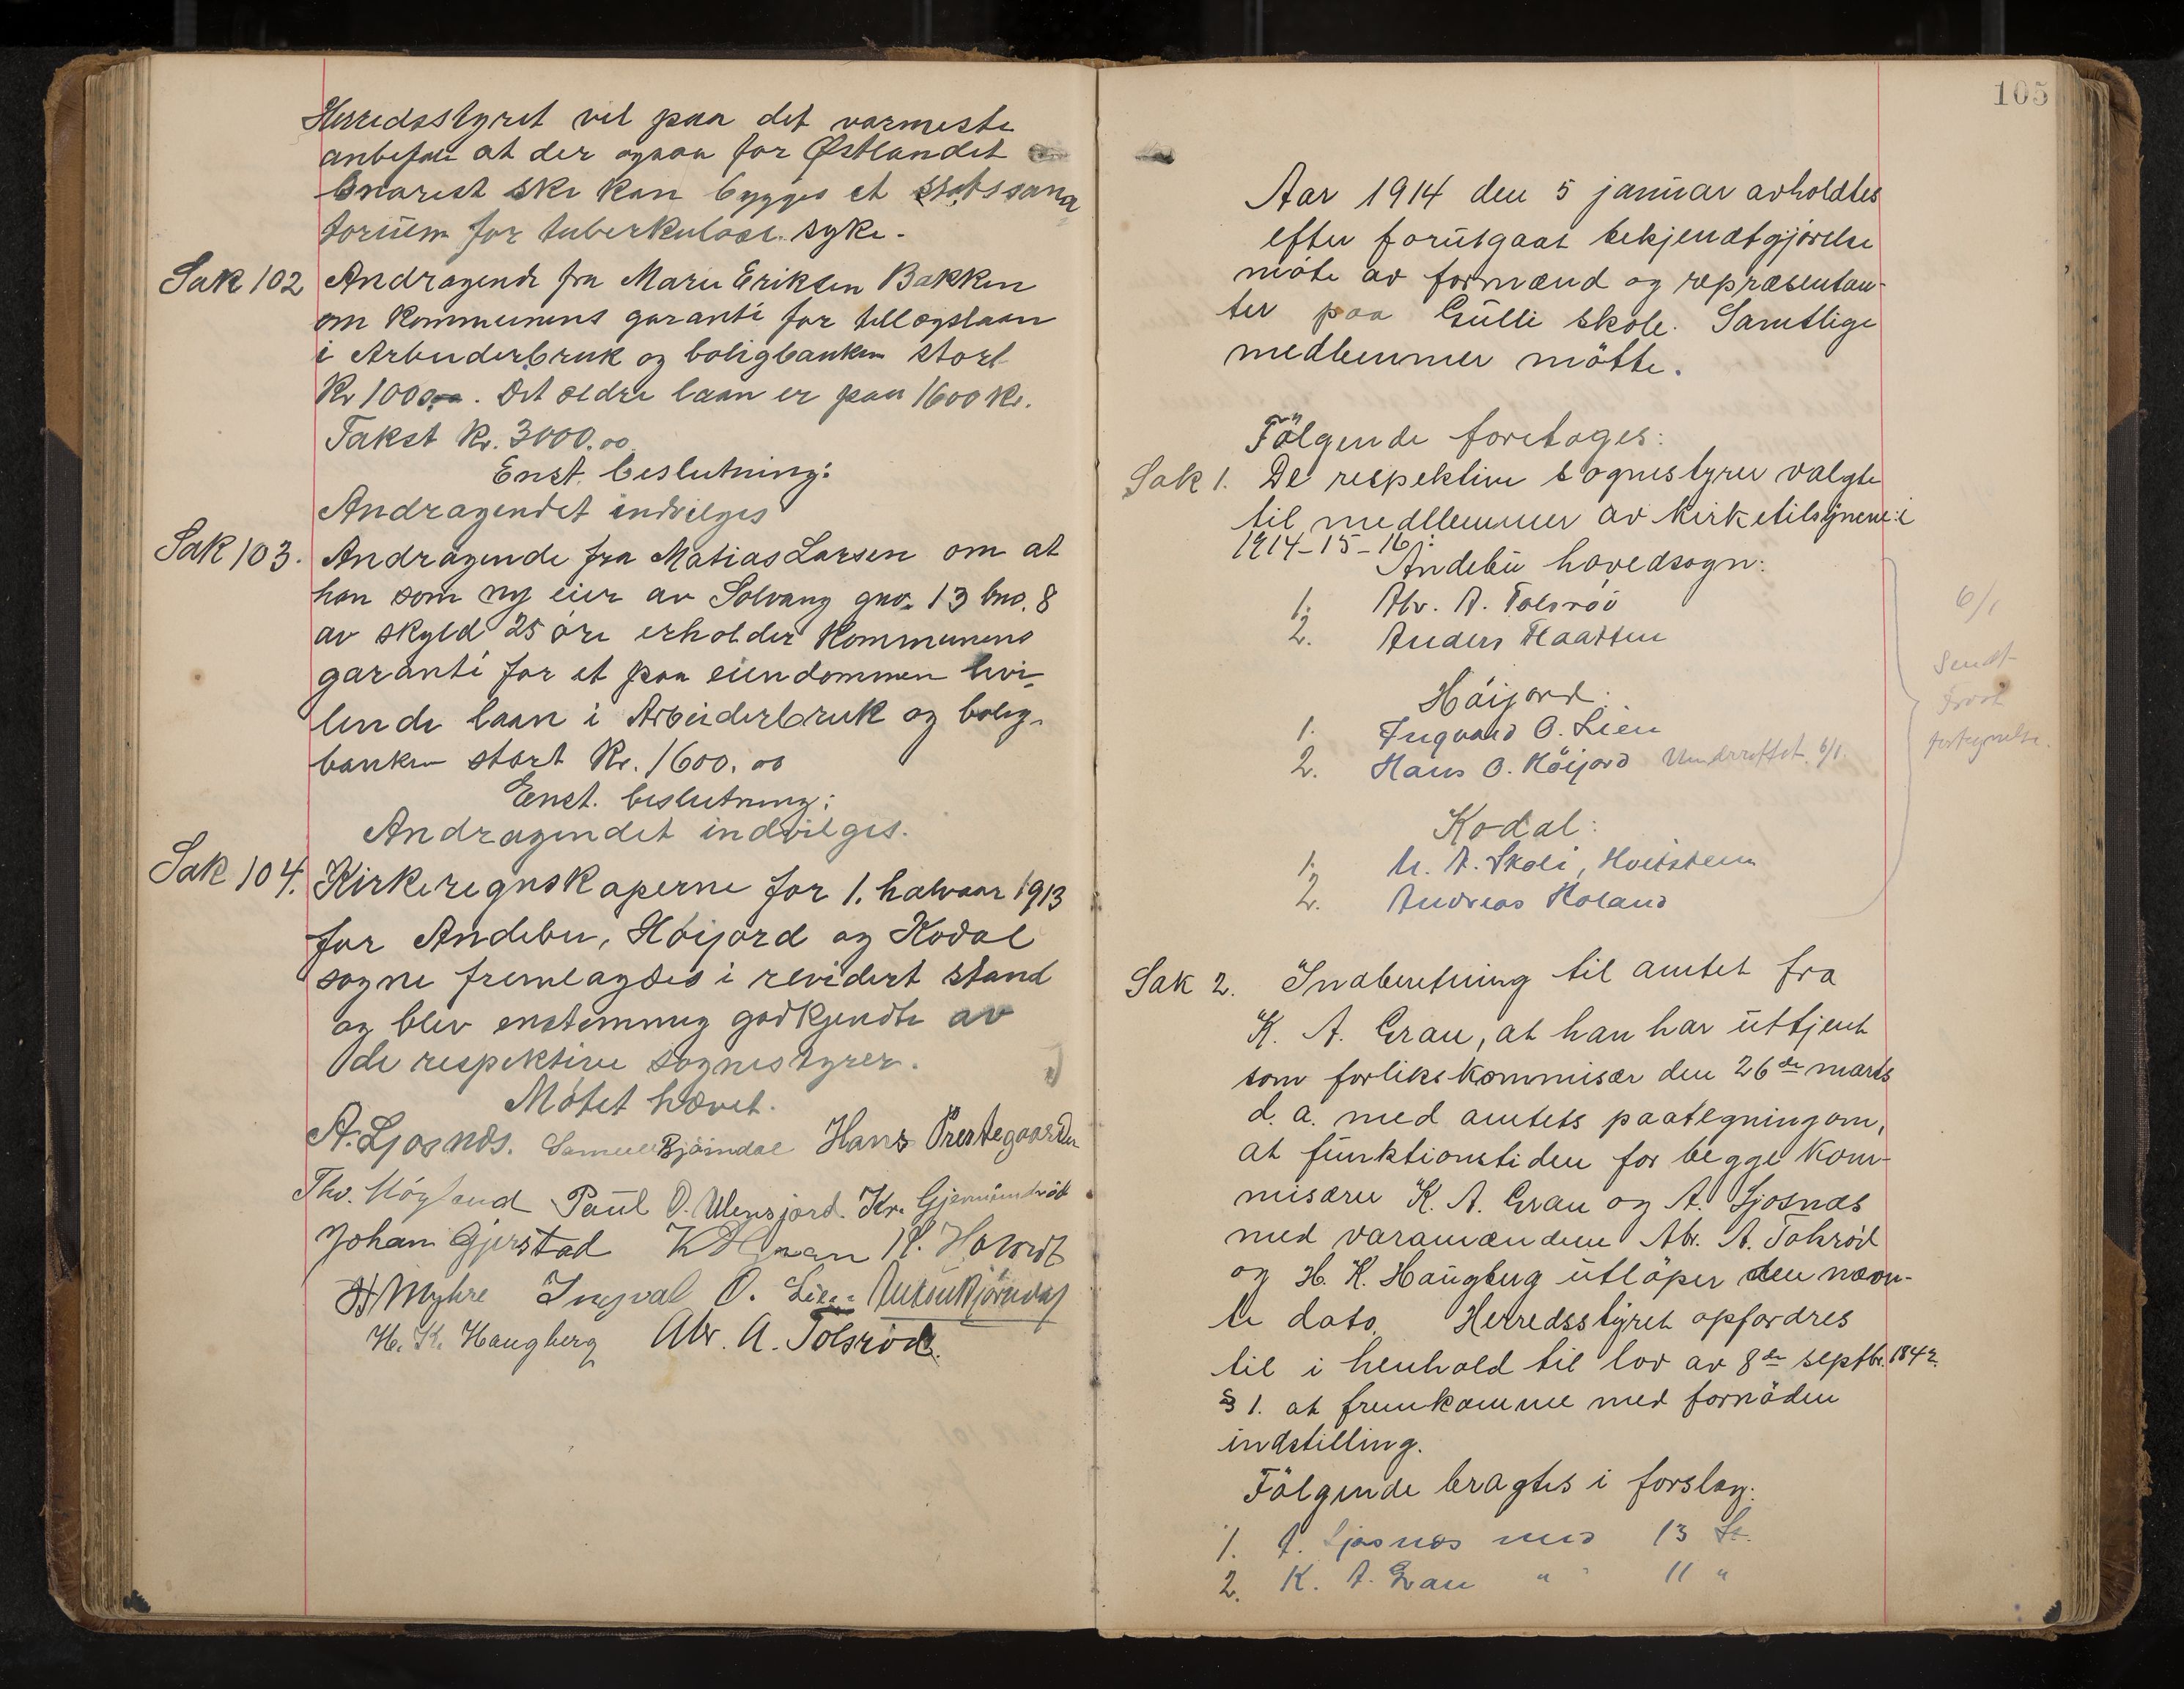 Herredsstyret vil paa det varmeste
anbefale at der ogsaa for Østlandet
snarest ske kan bygges et statssana
torium for tuberkuløse syke.
Sak 102 Andragende fra Marie Eriksen Bakken
om kommunens garanti for tillægslaan
i Arbeiderbruk og boligbanken stort
Kr 1000,00. Det ældre laan er paa 1600 Kr.
Takst Kr. 3000.00
Enst. beslutning:
Andragendet indvilges
Sak 103. Andragende fra Matias Larsen om at
han som ny eier av Solvang gno. 13 bno. 8
av skyld 25 øre erholder kommunens
garanti for et paa eiendommen hvi-
lende laan i Arbeiderbruk og bolig-
banken stort Kr. 1600.00
Enst. beslutning:
Andragendet indvilges.
Sak 104. Kirkeregnskaperne for 1. halvaar 1913
for Andebu, Høijord og Kodal
sogne fremlagdes i revidert stand
og blev enstemmig godkjendte av
de respektive sognestyrer.
Møtet hævet.
A. Ljosnæs. Samuel Bjørndal Hans Prestegaarden
Thv. Høyland Paul O. Ulensjord. Kr. Gjermundrød
Johan Gjerstad K A Grau H. Hotvedt
H Myhre Ingval O. Lien Anton Bjørndal
H. K. Haugberg Abr. A. Tolsrød.
105
Aar 1914 den 5 januar avholdtes
efter forutgaat bekjendtgjørelse
møte av formænd og repræsentan-
ter paa Gulli skole. Samtlige
medlemmer møtte.
Følgende foretoges:
Sak 1. De respektive sognestyrer valgte
til medllemmer av kirketilsynene i
1914-15-16:
Andebu hovedsogn:
1. Abr. A. Tolsrød
2. Anders Flaatten
Høijord:
1. Ingvald O. Lien
2. Hans O. Høijord Underrettet 6/1.
Kodal:
1. M. A. Skoli, Hvitstein
2. Andreas Holand
6/1
Sendt
fortegnelse.
Sak 2. Indberetning til amtet fra
K. A. Grau, at han har uttjent
som forlikskommisær den 26de marts
d. a. med amtets paategning om,
at funktionstiden for begge kom-
misærer K. A. Grau og A. Ljosnæs
med varamændene Abr. A. Tolsrød
og H. K. Haugberg utløper den nævn-
te dato. Herredsstyret opfordres
til i henhold til lov av 8de septbr. 1842
§ 1. at fremkomme med fornøden
indstilling.
Følgende bragtes i forslag:
1. A. Ljosnæs med 13 St.
2. K. A. Grau " " 11 "